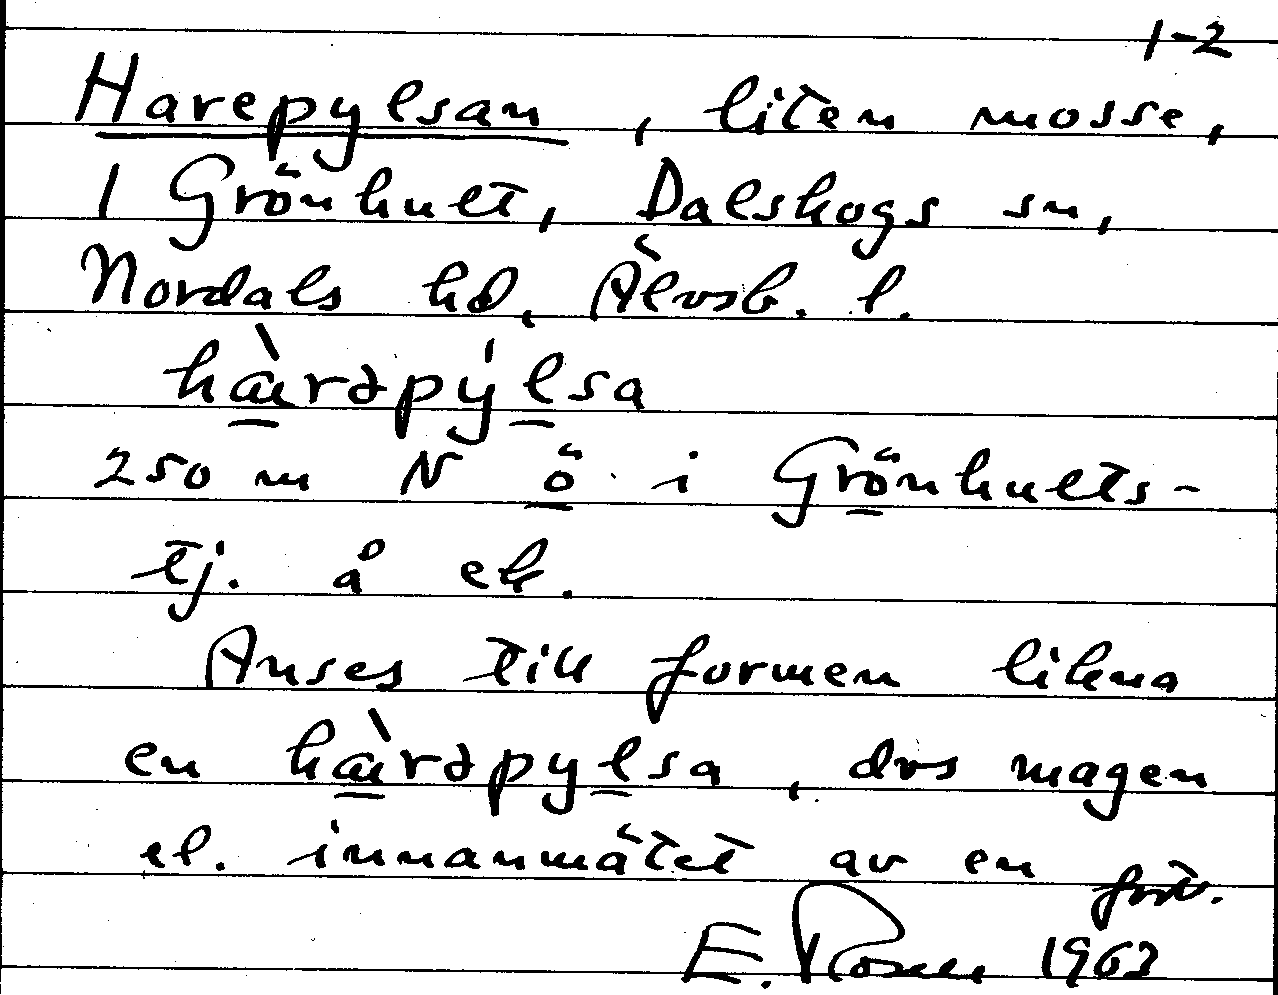 1-2
Harepylsan, liten mosse,
1 Grönhult, Dalskogs sn,
Nordals hd, Älvsb. l.
hæ̀rəpy̍lsa
250 m N ö i Grönhults-
tj. å ek.
Anses till formen likna
en hæ̀rəpylsa, dvs magen
el. innanmätet av en fort.
E. Rosen 1963